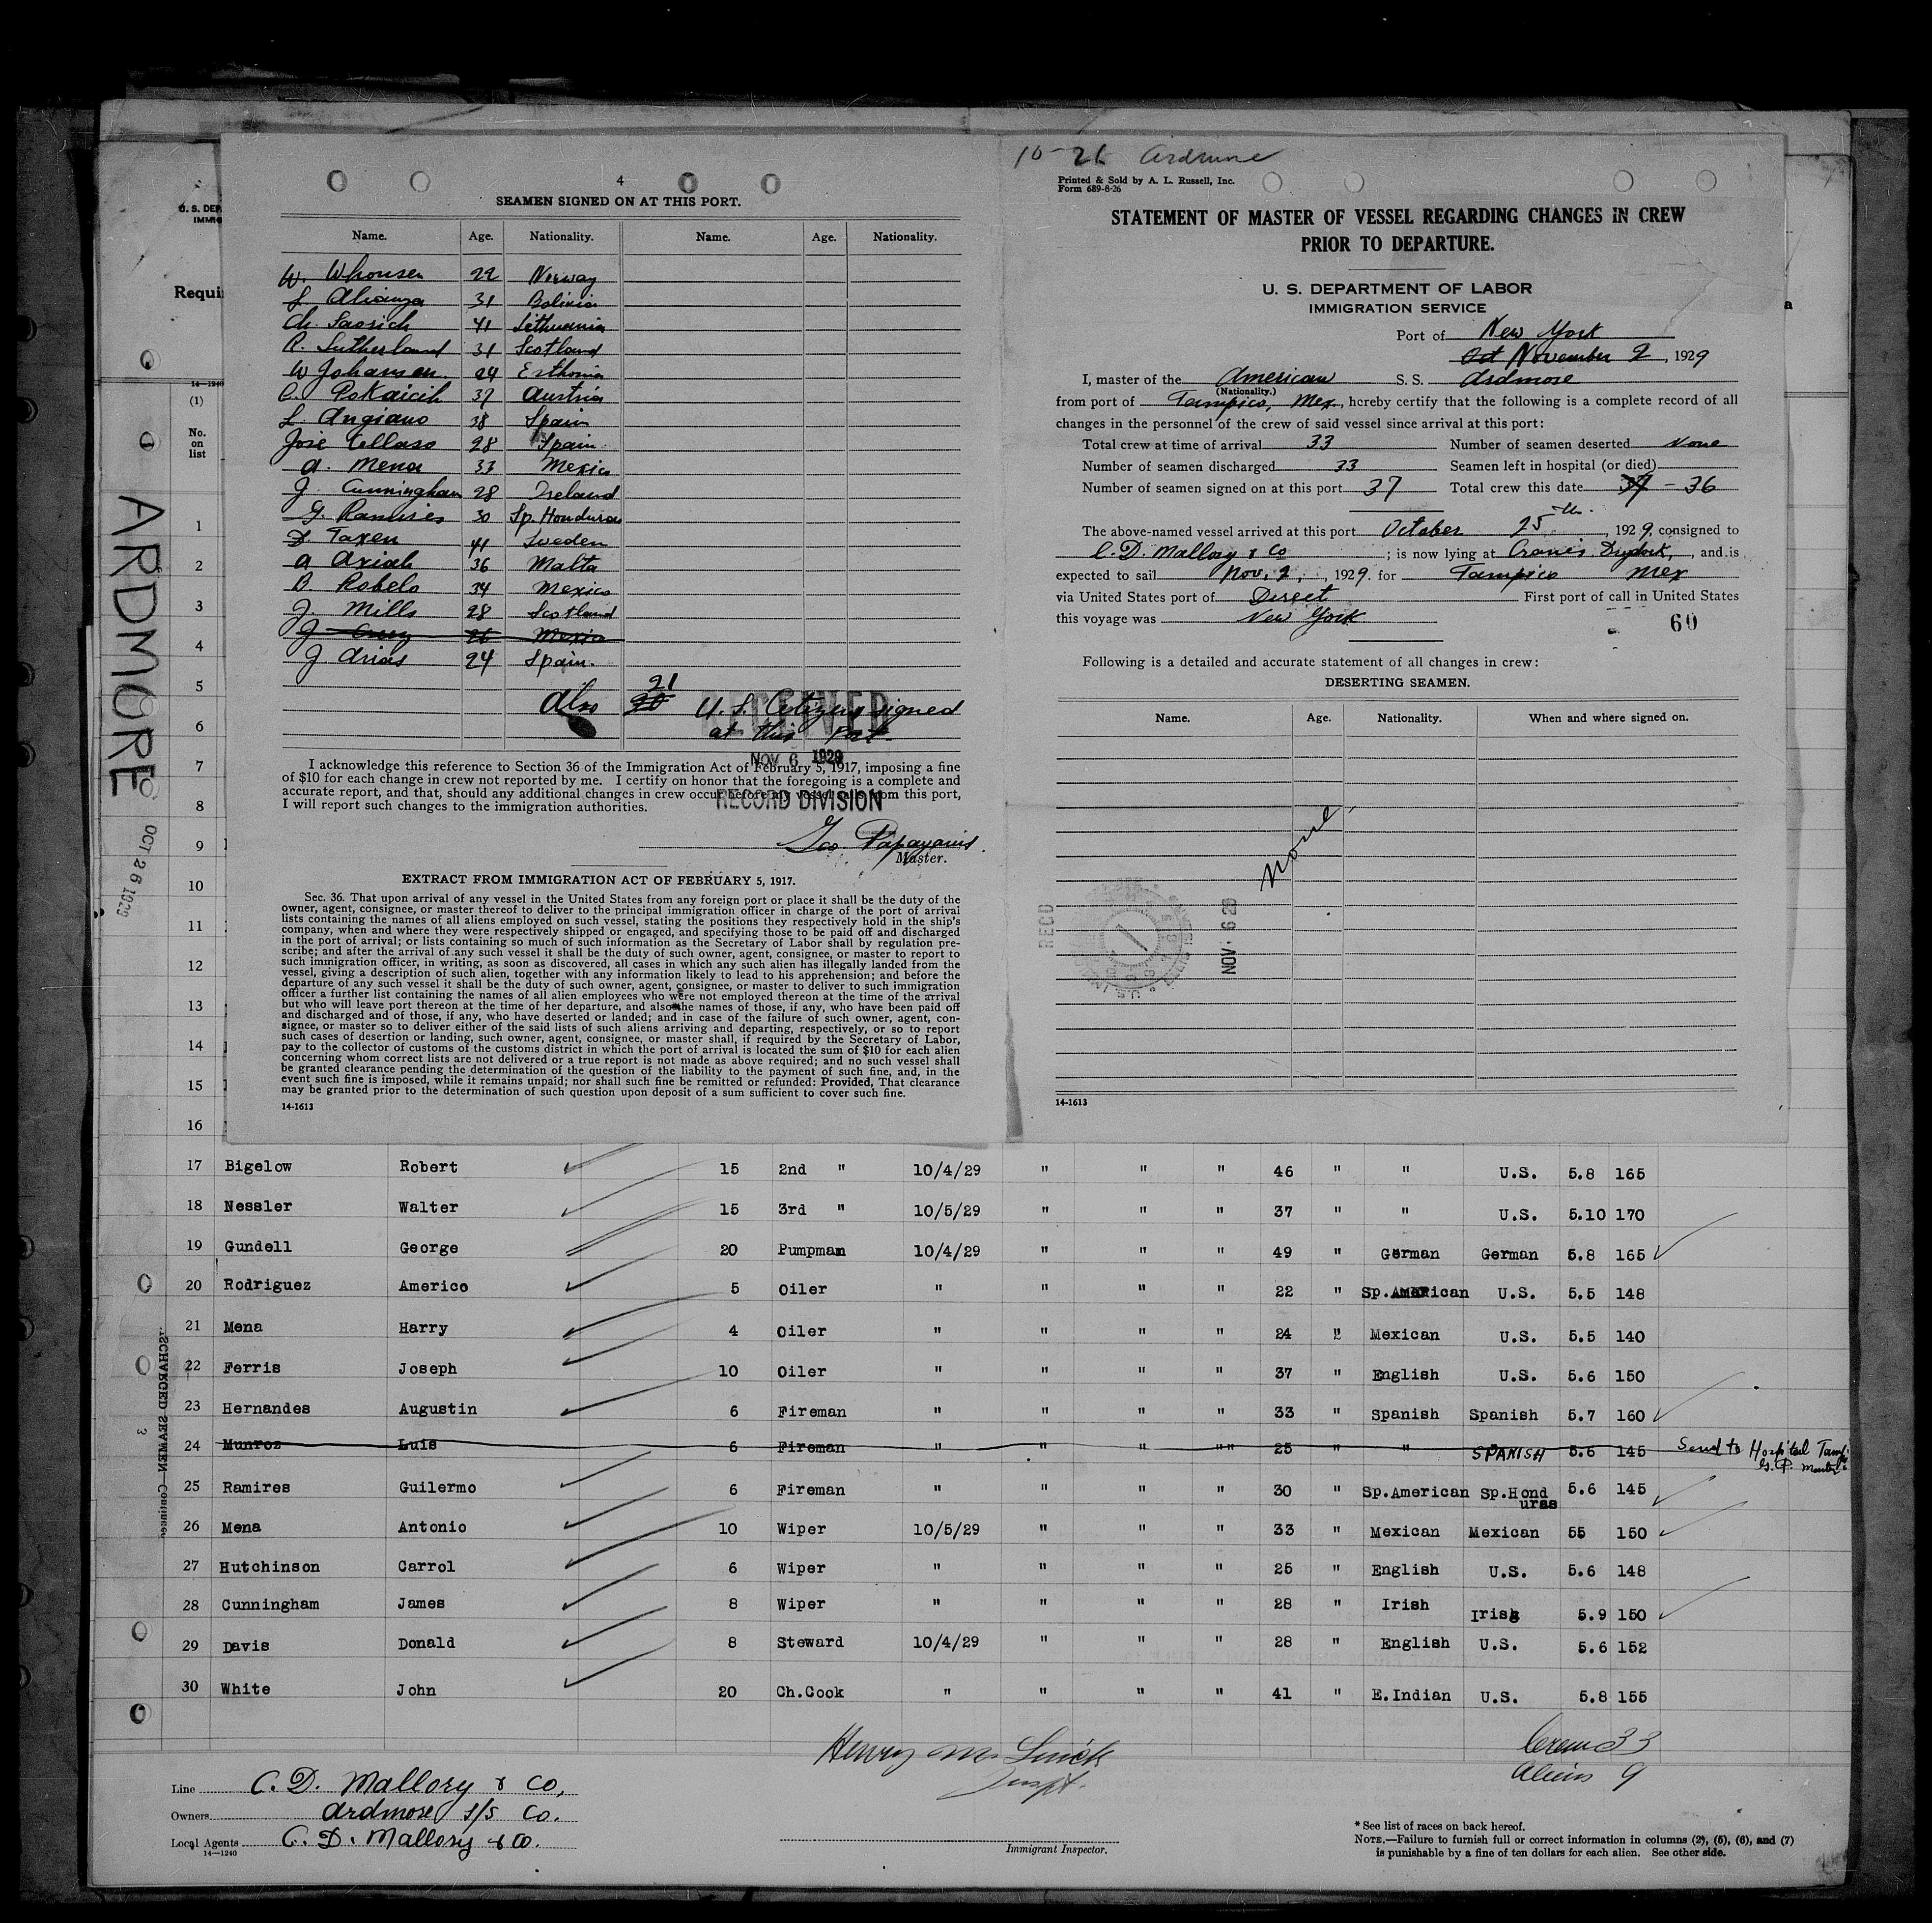 4
SEAMEN SIGNED ON AT THIS PORT.
Name. Age. Nationality. Name. Age. Nationality.
W. 22 Norway
31 Bolivia
Ch. 41 Lithuania
R. Sutherland 31 Scotland
W Johansen 24 Esthonia
37 Austria
L. Angiano 38 Spain
Jose 28 Spain
A. Mena 33 Mexico
J Cunningham 28 Ireland
G. Ramires 30 Sp. Honduras
Taxen 41 Sweden
A Axiah 36 Malta
B. Robelo 34 Mexico
J. Mills 28 Scotland
J 26 Mexico
J. Arias 24 Spain.
Also 30 21 U.S. Citizens signed
at this Port
RECEIVED
NOV 6 1929
RECORD DIVISION
I acknowledge this reference to Section 36 of the Immigration Act of February 5, 1917, imposing a fine
of $10 for each change in crew not reported by me. I certify on honor that the foregoing is a complete and
accurate report, and that, should any additional changes in crew occur before my vessel sails from this port,
I will report such changes to the immigration authorities.
Geo. Papayanis.
Master.
EXTRACT FROM IMMIGRATION ACT OF FEBRUARY 5, 1917.
Sec. 36. That upon arrival of any vessel in the United States from any foreign port or place it shall be the duty of the
owner, agent, consignee, or master thereof to deliver to the principal immigration officer in charge of the port of arrival
lists containing the names of all aliens employed on such vessel, stating the positions they respectively hold in the ship's
company, when and where they were respectively shipped or engaged, and specifying those to be paid off and discharged
in the port of arrival; or lists containing so much of such information as the Secretary of Labor shall by regulation pre-
scribe; and after the arrival of any such vessel it shall be the duty of such owner, agent, consignee, or master to report to
such immigration officer, in writing, as soon as discovered, all cases in which any such alien has illegally landed from the
vessel, giving a description of such alien, together with any information likely to lead to his apprehension; and before the
departure of any such vessel it shall be the duty of such owner, agent, consignee, or master to deliver to such immigration
officer a further list containing the names of all alien employees who were not employed thereon at the time of the arrival
but who will leave port thereon at the time of her departure, and also the names of those, if any, who have been paid off
and discharged and of those, if any, who have deserted or landed; and in case of the failure of such owner, agent, con-
signee, or master so to deliver either of the said lists of such aliens arriving and departing, respectively, or so to report
such cases of desertion or landing, such owner, agent, consignee, or master shall, if required by the Secretary of Labor,
pay to the collector of customs of the customs district in which the port of arrival is located the sum of $10 for each alien
concerning whom correct lists are not delivered or a true report is not made as above required; and no such vessel shall
be granted clearance pending the determination of the question of the liability to the payment of such fine, and, in the
event such fine is imposed, while it remains unpaid; nor shall such fine be remitted or refunded: Provided, That clearance
may be granted prior to the determination of such question upon deposit of a sum sufficient to cover such fine.
14-1613
10-26 Ardmore
Printed & Sold by A. L. Russell, Inc.
Form 689-8-26
STATEMENT OF MASTER OF VESSEL REGARDING CHANGES IN CREW
PRIOR TO DEPARTURE.
U. S. DEPARTMENT OF LABOR
IMMIGRATION SERVICE
Port of New York
Oct November 2, 1929
I, master of the American S. S. Ardmore
(Nationality.)
from port of Tampico, Mex, hereby certify that the following is a complete record of all
changes in the personnel of the crew of said vessel since arrival at this port:
Total crew at time of arrival 33 Number of seamen deserted None
Number of seamen discharged 33 Seamen left in hospital (or died)
Number of seamen signed on at this port 37 Total crew this date 37 - 36
The above-named vessel arrived at this port October 25 th., 1929, consigned to
C. D. Mallory & Co; is now lying at Crane's Drydock, and is
expected to sail Nov. 2, 1929. for Tampico Mex
via United States port of Direct First port of call in United States
this voyage was New York
60
Following is a detailed and accurate statement of all changes in crew:
DESERTING SEAMEN.
Name. Age. Nationality. When and where signed on.
None
RECD
NOV. 6 29
14-1613
U. S. DEP
IMMIG
Requi
14—1240
(1)
No.
on
list
ARDMORE
OCT 26 1929
1
2
3
4
5
6
7
8
9
10
11
12
13
14
15
16
17 Bigelow Robert 15 2nd " 10/4/29 " " " 46 " " U.S. 5.8 165
18 Nessler Walter 15 3rd " 10/5/29 " " " 37 " " U.S. 5.10 170
19 Gundell George 20 Pumpman 10/4/29 " " " 49 " German German 5.8 165
20 Rodriguez Americo 5 Oiler " " " " 22 " Sp.American U.S. 5.5 148
21 Mena Harry 4 Oiler " " " " 24 " Mexican U.S. 5.5 140
22 Ferris Joseph 10 Oiler " " " " 37 " English U.S. 5.6 150
23 Hernandes Augustin 6 Fireman " " " " 33 " Spanish Spanish 5.7 160
24 Munroz Luis 6 Fireman " " " "" 25 " " SPANISH 5.6 145 Send to Hospital
25 Ramires Guilermo 6 Fireman " " " " 30 " Sp.American Sp.Hond 5.6 145
uras
26 Mena Antonio 10 Wiper 10/5/29 " " " 33 " Mexican Mexican 55 150
27 Hutchinson Carrol 6 Wiper " " " " 25 " English U.S. 5.6 148
28 Cunningham James 8 Wiper " " " " 28 " Irish Irish 5.9 150
29 Davis Donald 8 Steward 10/4/29 " " " 28 " English U.S. 5.6 152
30 White John 20 Ch.Cook " " " " 41 " E.Indian U.S. 5.8 155
Crew 33
Aliens 9
Line C. D. Mallory & Co,
Owners Ardmore s/s Co.
Local Agents C. D. Mallory & Co.
14—1240
Immigrant Inspector.
* See list of races on back hereof.
NOTE.—Failure to furnish full or correct information in columns (2), (5), (6), and (7)
is punishable by a fine of ten dollars for each alien. See other side.